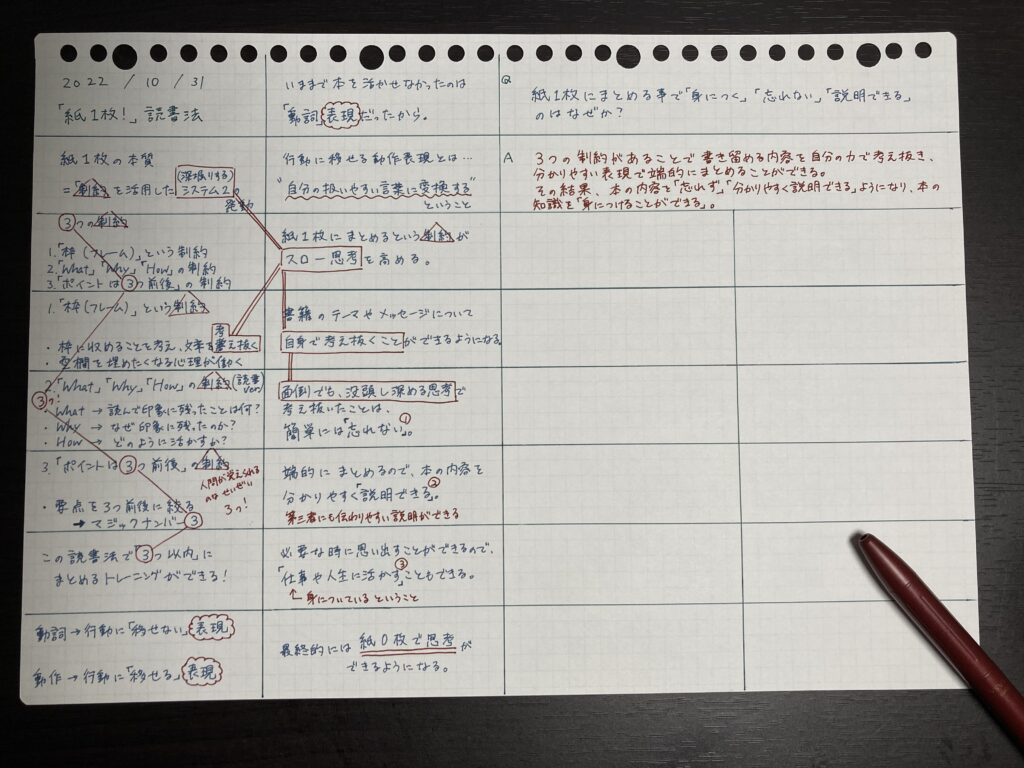 2022 / 10 / 31
「紙1枚！」読書法
紙1枚の本質
(深堀りする)
=「制約」を活用したシステム2の
発動
3つの制約
1.「枠（フレーム）」という制約
2.「What」「Why」「How」の制約
3.「ポイントは3つ前後」の制約
1.「枠(フレーム)」という制約
・枠に収めることを考え、文章を考え抜く
考
・空欄を埋めたくなる心理が働く
2.「What」「Why」「How」の制約(読書ver)
3つ!
・What → 読んで印象に残ったことは何？
・Why → なぜ印象に残ったのか？
・How → どのように活かすか？
3.「ポイントは3つ前後」の制約
人間が覚えられる
のはせいぜい
3つ！
・要点を3つ前後に絞る
→ マジックナンバー3
この読書法で「3つ以内」に
まとめるトレーニングができる！
動詞→行動に「移せない」表現
動作→行動に「移せる」表現
いままで本を活かせなかったのは
「動詞」表現だったから。
行動に移せる動作表現とは…
"自分の扱いやすい言葉に変換する"
ということ
紙1枚にまとめるという制約が
スロー思考を高める。
書籍のテーマやメッセージについて
自身で考え抜くことができるようになる
面倒でも、没頭し深める思考で
考え抜いたことは、
簡単には「忘れない」。①
端的にまとめるので、本の内容を
分かりやすく「説明できる」。②
第三者にも伝わりやすい説明ができる
必要な時に思い出すことができるので、
「仕事や人生に活かす」こともできる。③
↑身についているということ
最終的には紙0枚で思考が
できるようになる。
Q
紙1枚にまとめる事で「身につく」「忘れない」「説明できる」
のはなぜか？
A
3つの制約があることで書き留める内容を自分の力で考え抜き、
分かりやすい表現で端的にまとめることができる。
その結果、本の内容を「忘れず」「分かりやすく説明できる」ようになり、本の
知識を「身につけることができる」。